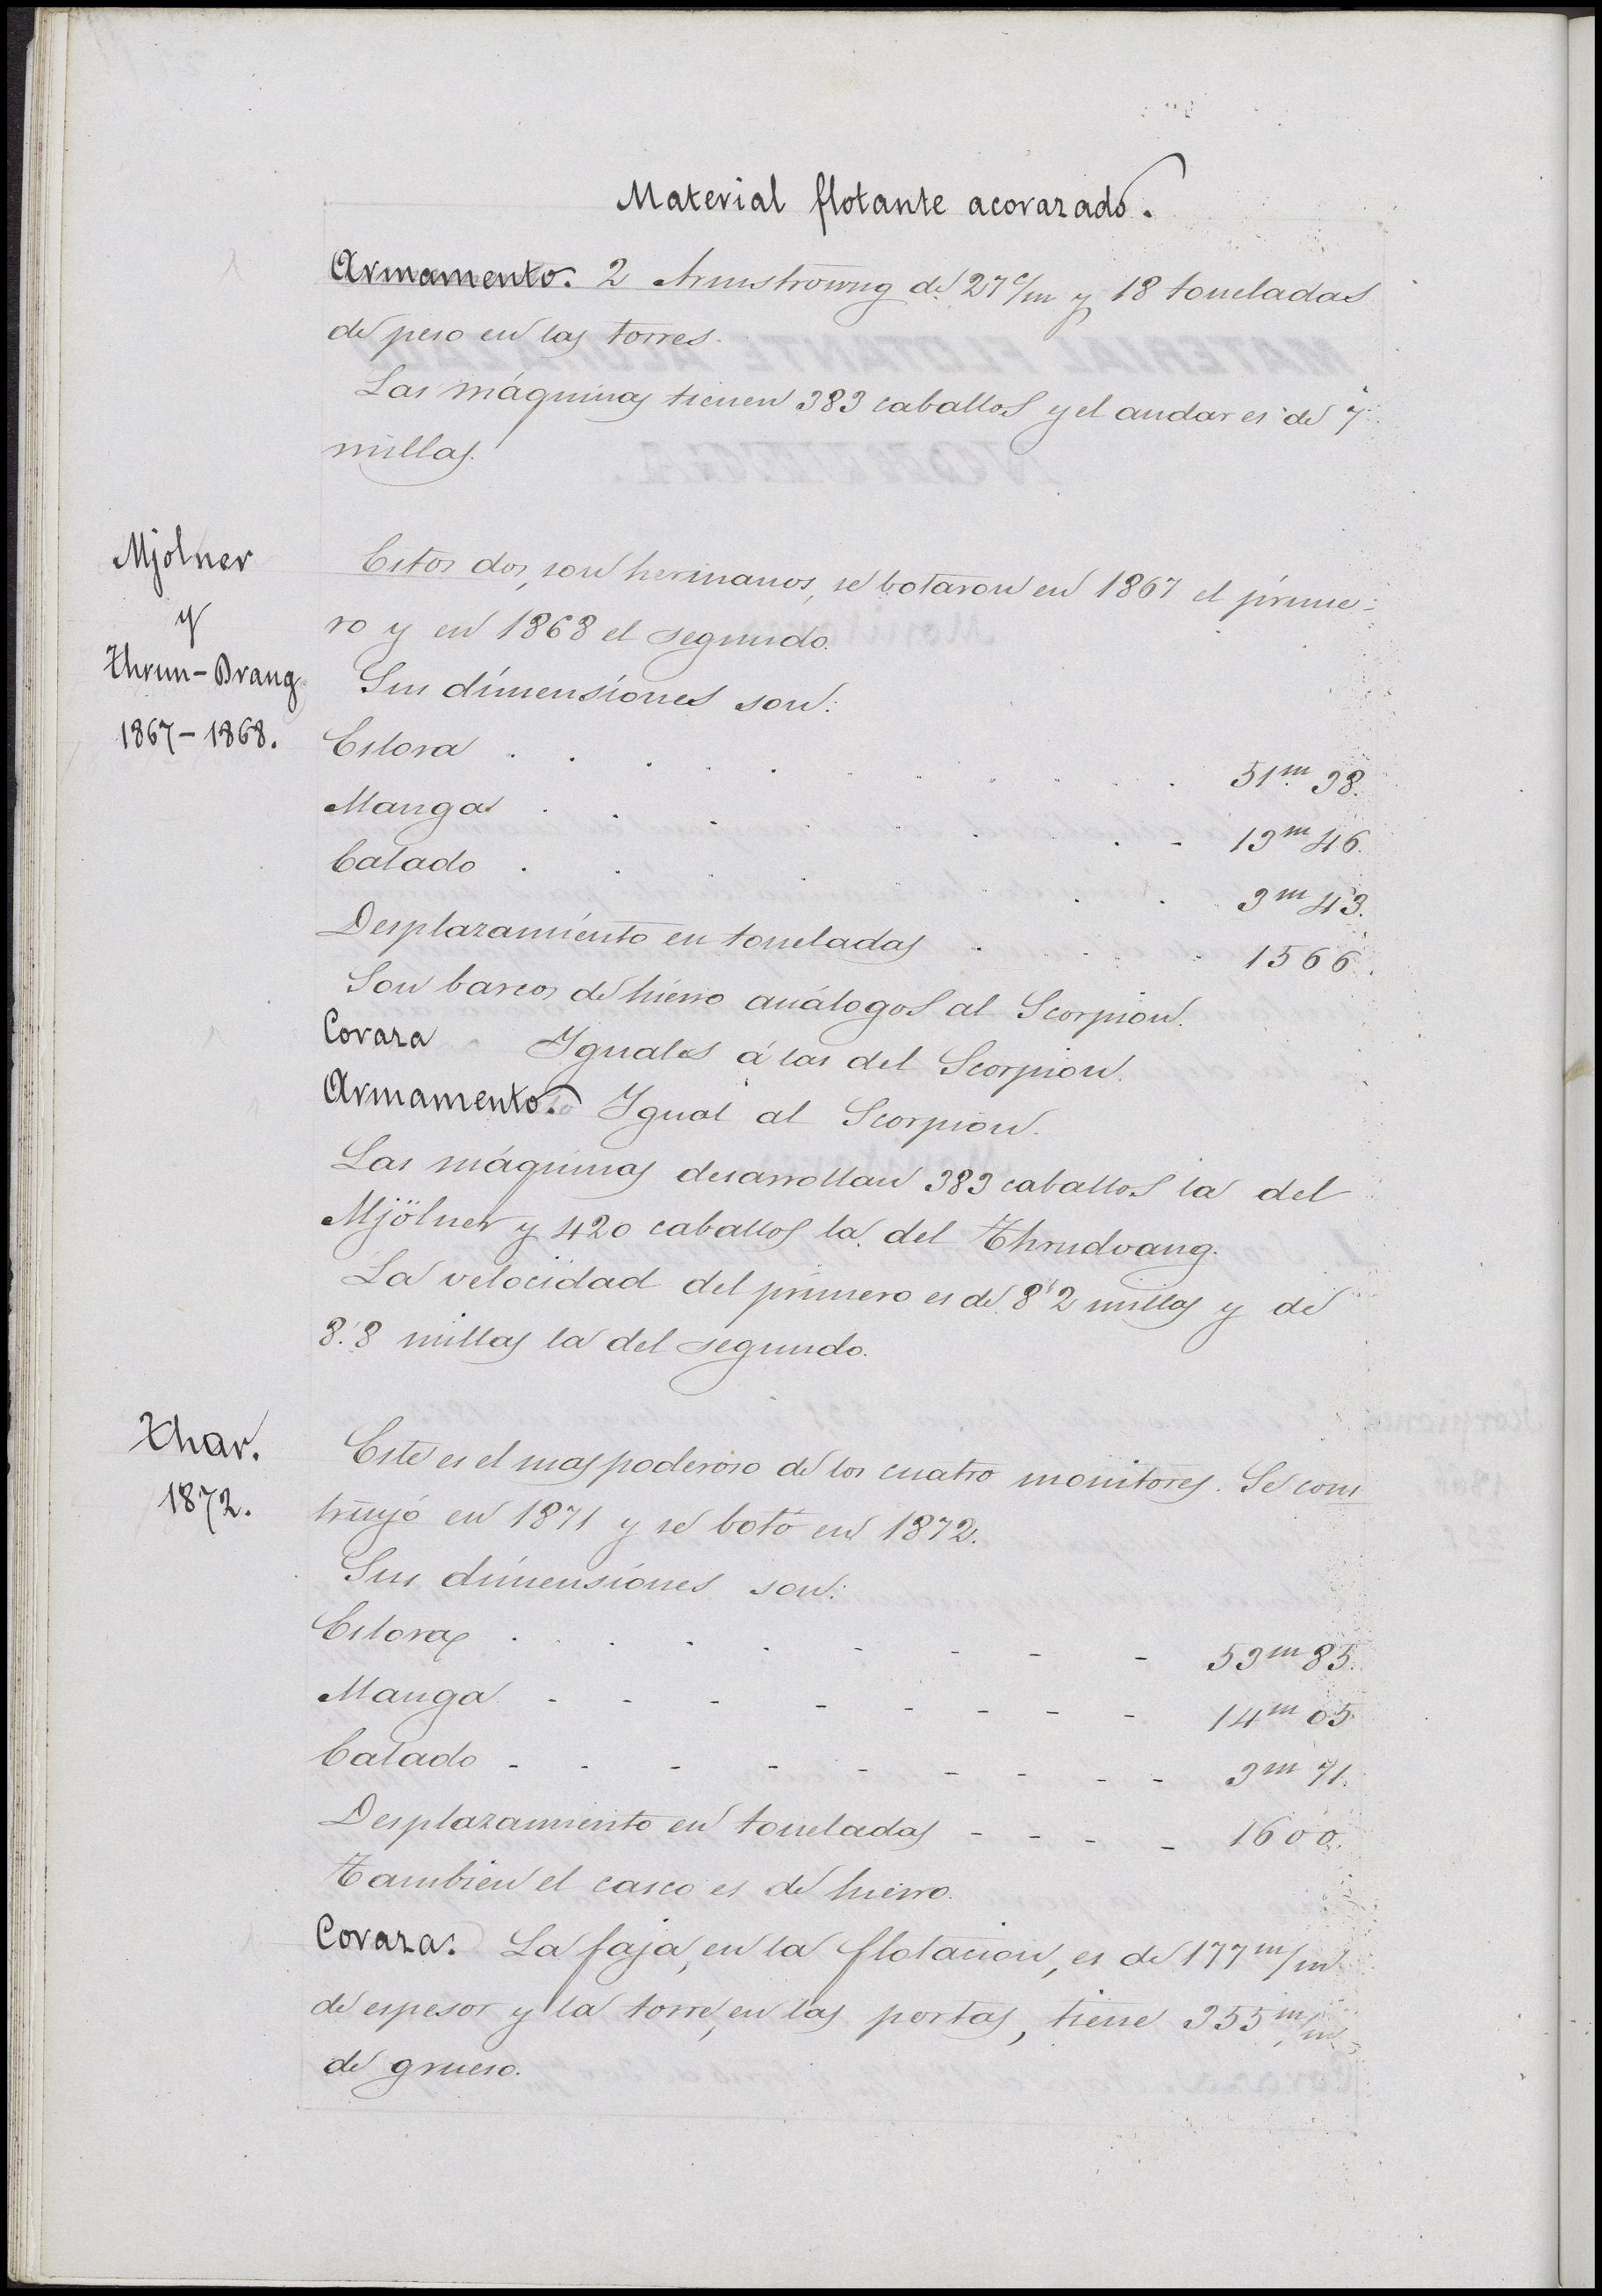 Material flotante acorazado.
Armamento. 2 Armstrowng de 27 c/m y 18 toneladas
de peso en las torres.
Las máquinas tienen 383 caballos y el andar es de 7
millas.
Mjolner
y
Thrun-Drang
1867-1868.
Estos dos, son hermanos, se botaron en 1867 el prime-
ro y en 1868 el segundo.
Sus dimensiones son:
Eslora . . . . . . . . . . 51m 38.
Manga . . . . . . . . . 13m 46.
Calado . . . . . . . . 3m 43.
Desplazamiento en toneladas . . . . 1566.
Son barcos de hierro análogos al Scorpion.
Coraza Iguales á las del Scorpion.
Armamento. Igual al Scorpion.
Las máquinas desarrollan 383 caballos la del
Mjölner y 420 caballos la del Thrudvang.
La velocidad del primero es de 8'2 millas y de
8'8 millas la del segundo.
Thar.
1872.
Este es el mas poderoso de los cuatro monitores. Se cons
truyó en 1871 y se botó en 1872.
Sus dimensiones son:
Eslora . . . . . - - - - 53m 85.
Manga - - - - - - - - 14m 05.
Calado - - - - - - - - - 3m 71.
Desplazamiento en toneladas - - - - 1600.
Tambien el casco es de hierro.
Coraza. La faja, en la flotacion, es de 177 m/m
de espesor y la torre, en las portas, tiene 355 m/m
de grueso.